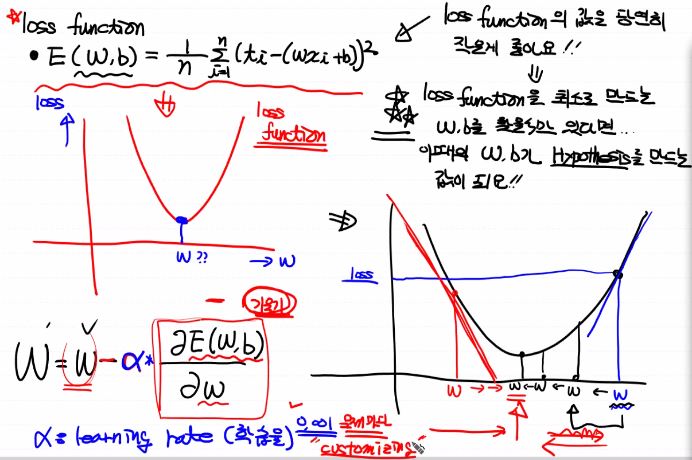 ☆ loss function
• E(W,b) = 1/n Σ i=1 n (ti-(wxi+b))²
loss function의 값을 당연히
작은게 좋아요!!
⇓
loss function을 최소로 만드는
W,b를 찾을수가 있다면...
이때의 W,b가 Hypothesis를 만드는
값이 되요!!
loss
loss
function
W ??
→ W
⇒
loss
W → → W ← W ← ← W
- 기울기
W' = W - α * ∂E(W,b) / ∂w
α = learning rate (학습율) 0.001
customizing